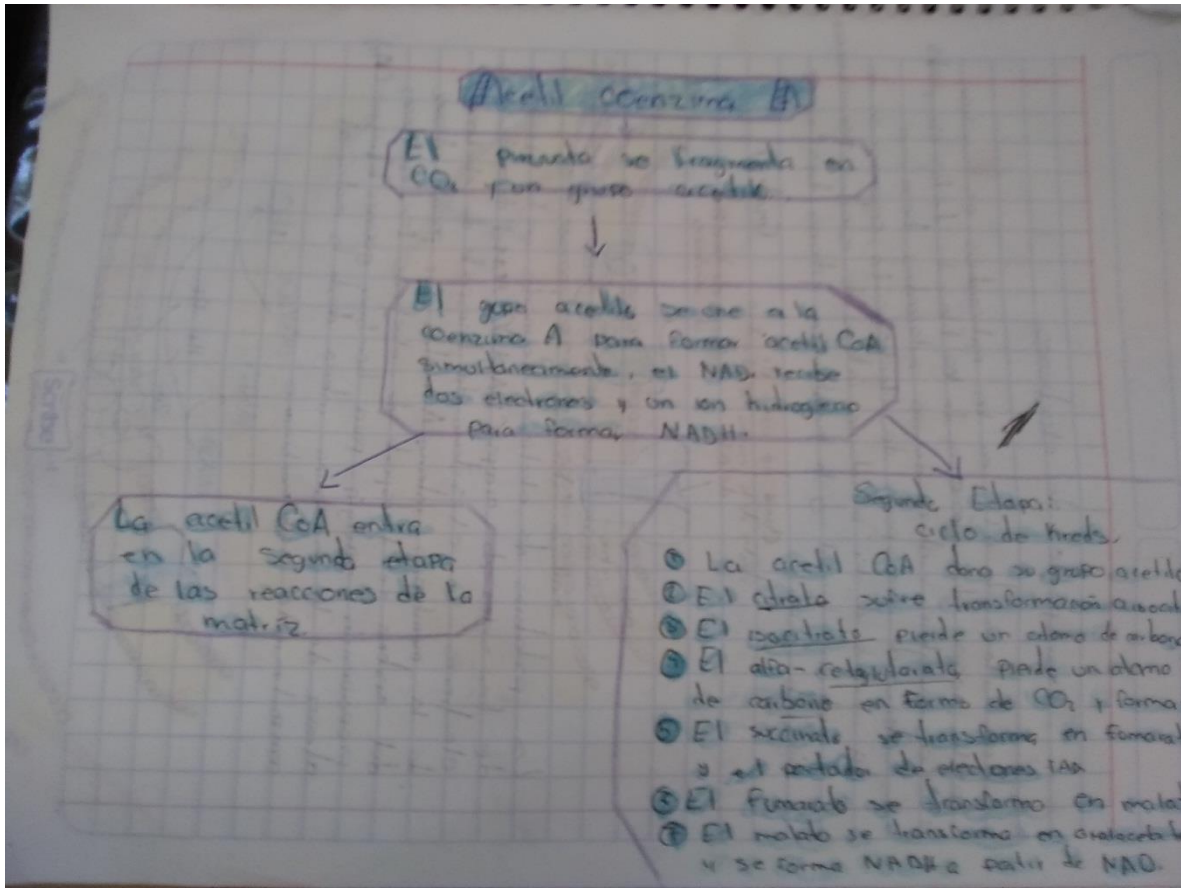 Acetil coenzima A
El piruvato se fragmenta en
CO₂ y un grupo acetilo
El grupo acetilo se une a la
coenzima A para formar acetil CoA
simultaneamente, el NAD recibe
dos electrones y un ion hidrogeno
para formar NADH.
La acetil CoA entra
en la segunda etapa
de las reacciones de la
matriz
Segunda Etapa:
ciclo de Kreds.
① La acetil CoA dona su grupo acetilo
② El citrato sufre transformación
③ El isocitrato pierde un atomo de carbono
El alfa- pierde un atomo
de carbono en forma de CO₂ y forma
⑤ El succinato se transforma en
y el portador de electrones
El fumarato se transforma en
El malato se transforma en
y se forma NADH a partir de NAD.
Scribe